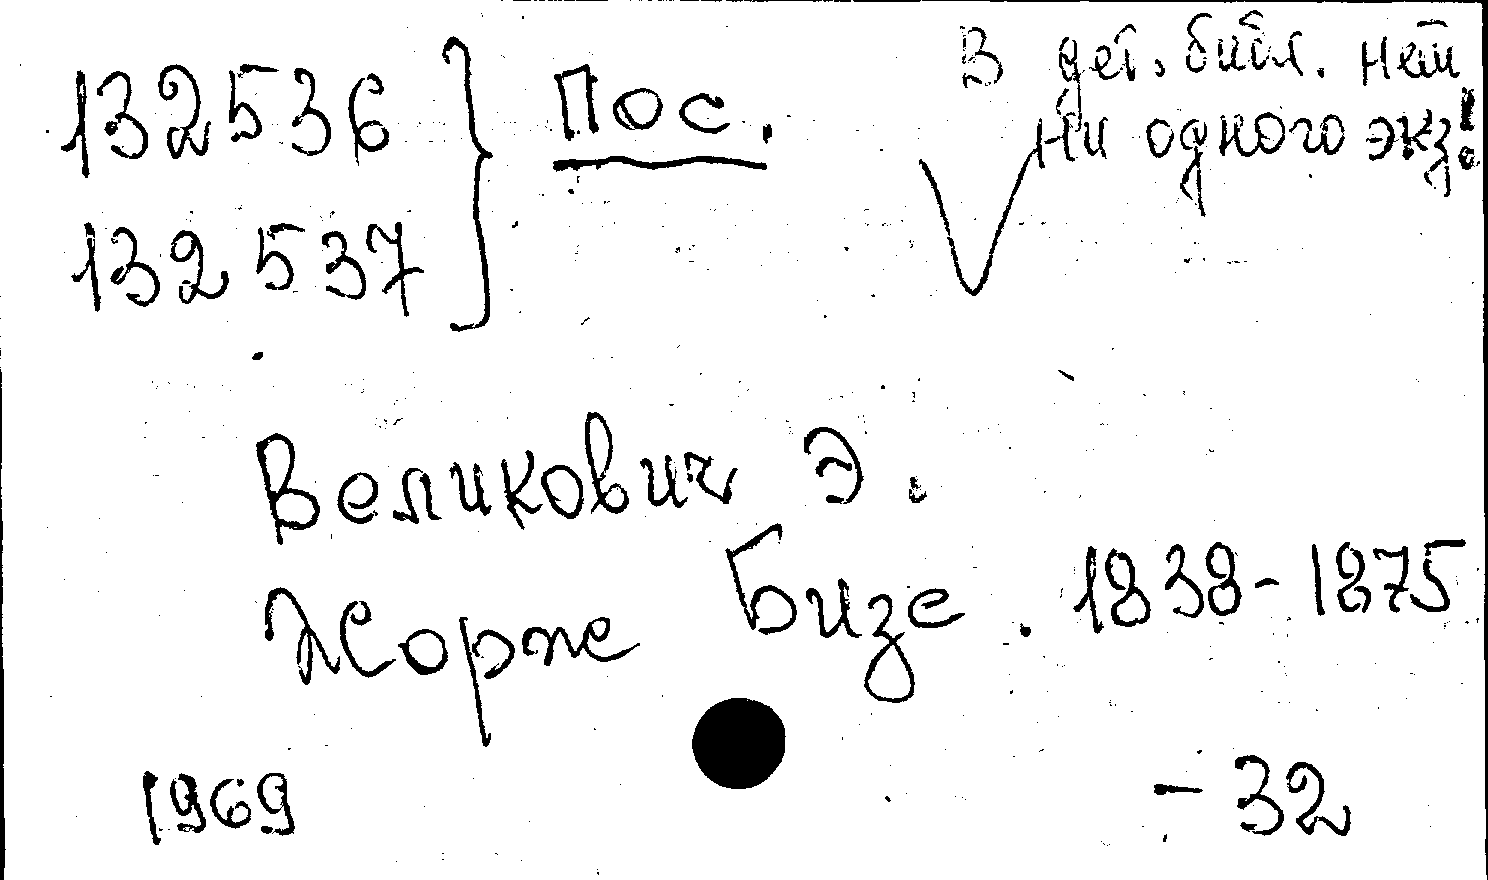 132536 } Пос.
132537
В дет. библ. нет
ни одного экз!
Великович Э.
Жорж Бизе. 1838-1875
1969
- 32